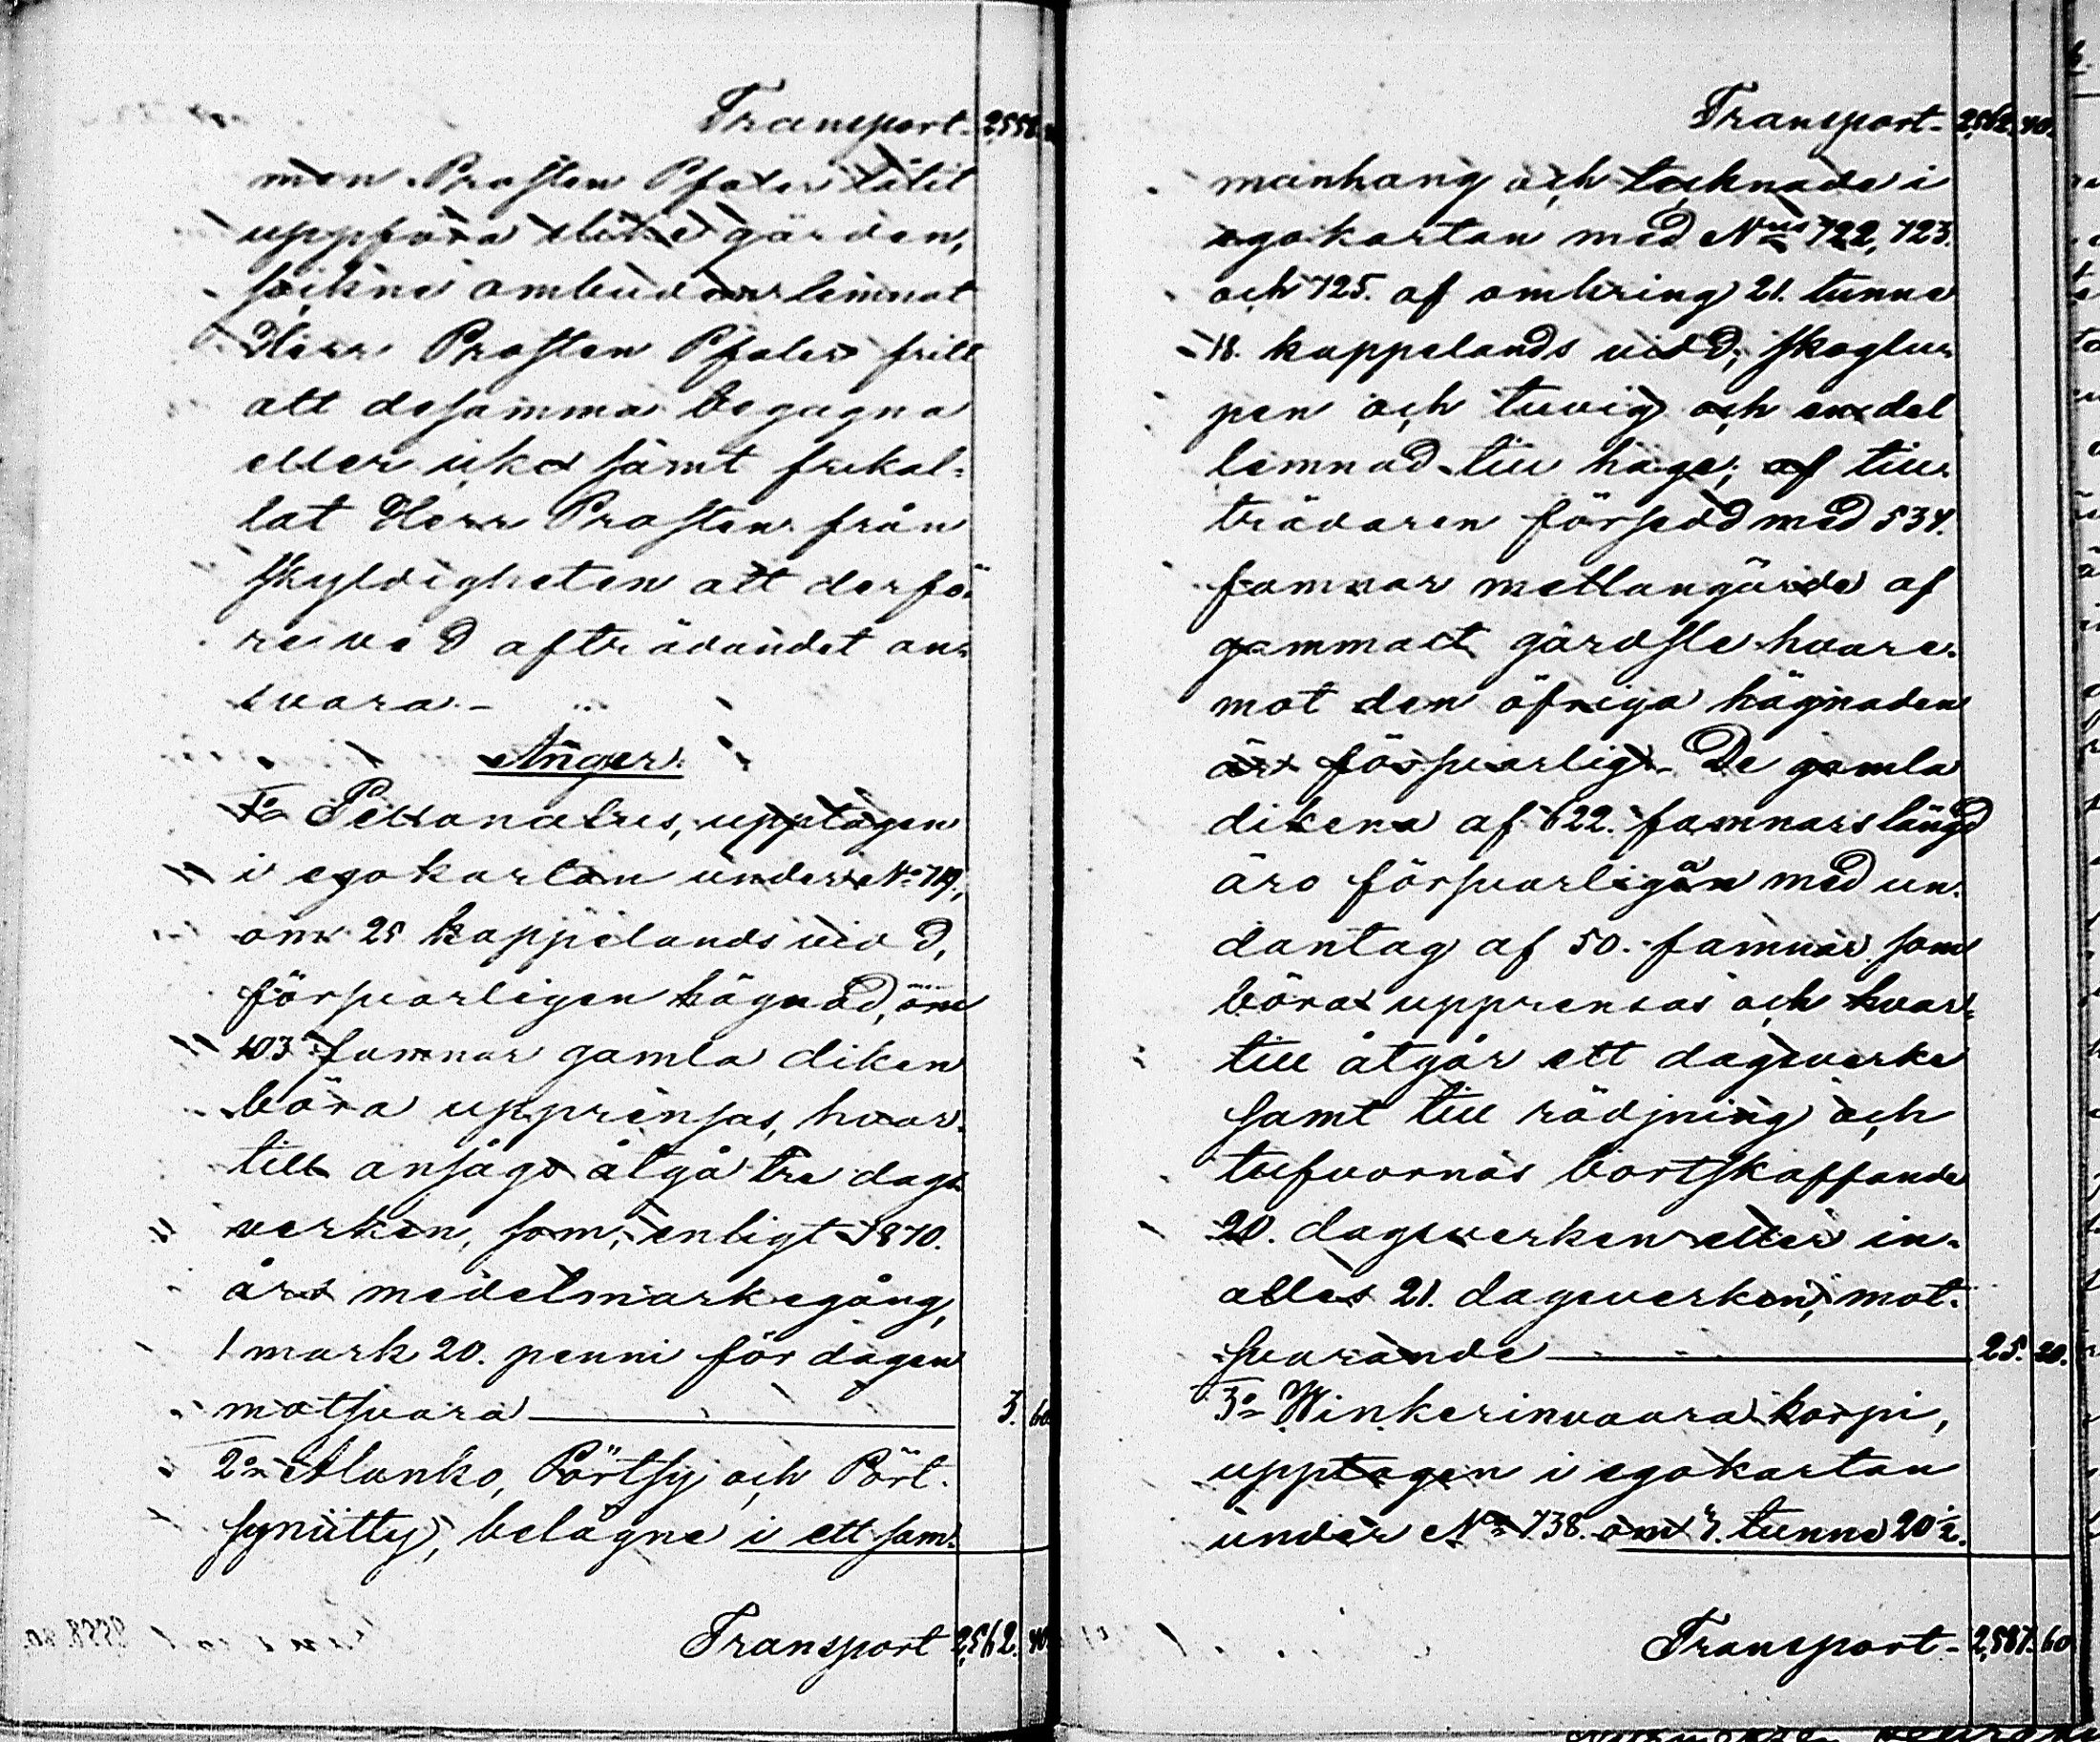 Transport. 2,558. 80
men Prosten Pfaler låtit
uppföra slike gärden,
sockne ombuden lemnat
Herr Prosten Pfaler fritt
att desamma begagna
eller icke samt frikal-
lat Herr Prosten från
skyldigheten att derfö-
re ved afträdandet an-
svara.-
Ängar.
1o upptagen
i egokartan under No 719,
om 25 kappelands vidd,
försvarligen hägnad, om
103 famnar gamla diken
böra upprensas, hvar-
till ansågs åtgå tre dags-
verken, som, enligt 1870.
års medelmarkegång,
1 mark 20. penni för dagen
motsvara 3. 60
2o Alanko, Pörtsy och Pört-
synütty, belägne i ett sam-
Transport 2,562. 40
Transport- 2,562. 40.
manhang och tecknade i
egokartan med Nris 722, 723.
och 725. af omkring 21. tunne
18. kappelands vidd; skoglu-
pen och tuvig och en del
lemnad till hage; af till-
trädaren försedd med 534.
famnar mellangärde af
gammalt gärdsle hvare-
mot den öfriga hägnaden
är försvarlig. De gamla
dikena af 622. famnars längd
äro försvarliga med un-
dantag af 50. famnar som
böra upprensas och hvar-
till åtgår ett dagsverke
samt till rödjning och
tufvornas bortskaffande
20. dagsverken eller in-
alles 21. dagsverken, mot-
svarande 25. 20.
3o Winkerinvaara korpi,
upptagen i egokartan
under No 738. om 3. tunne 20 1/2.
Transport- 2,587. 60